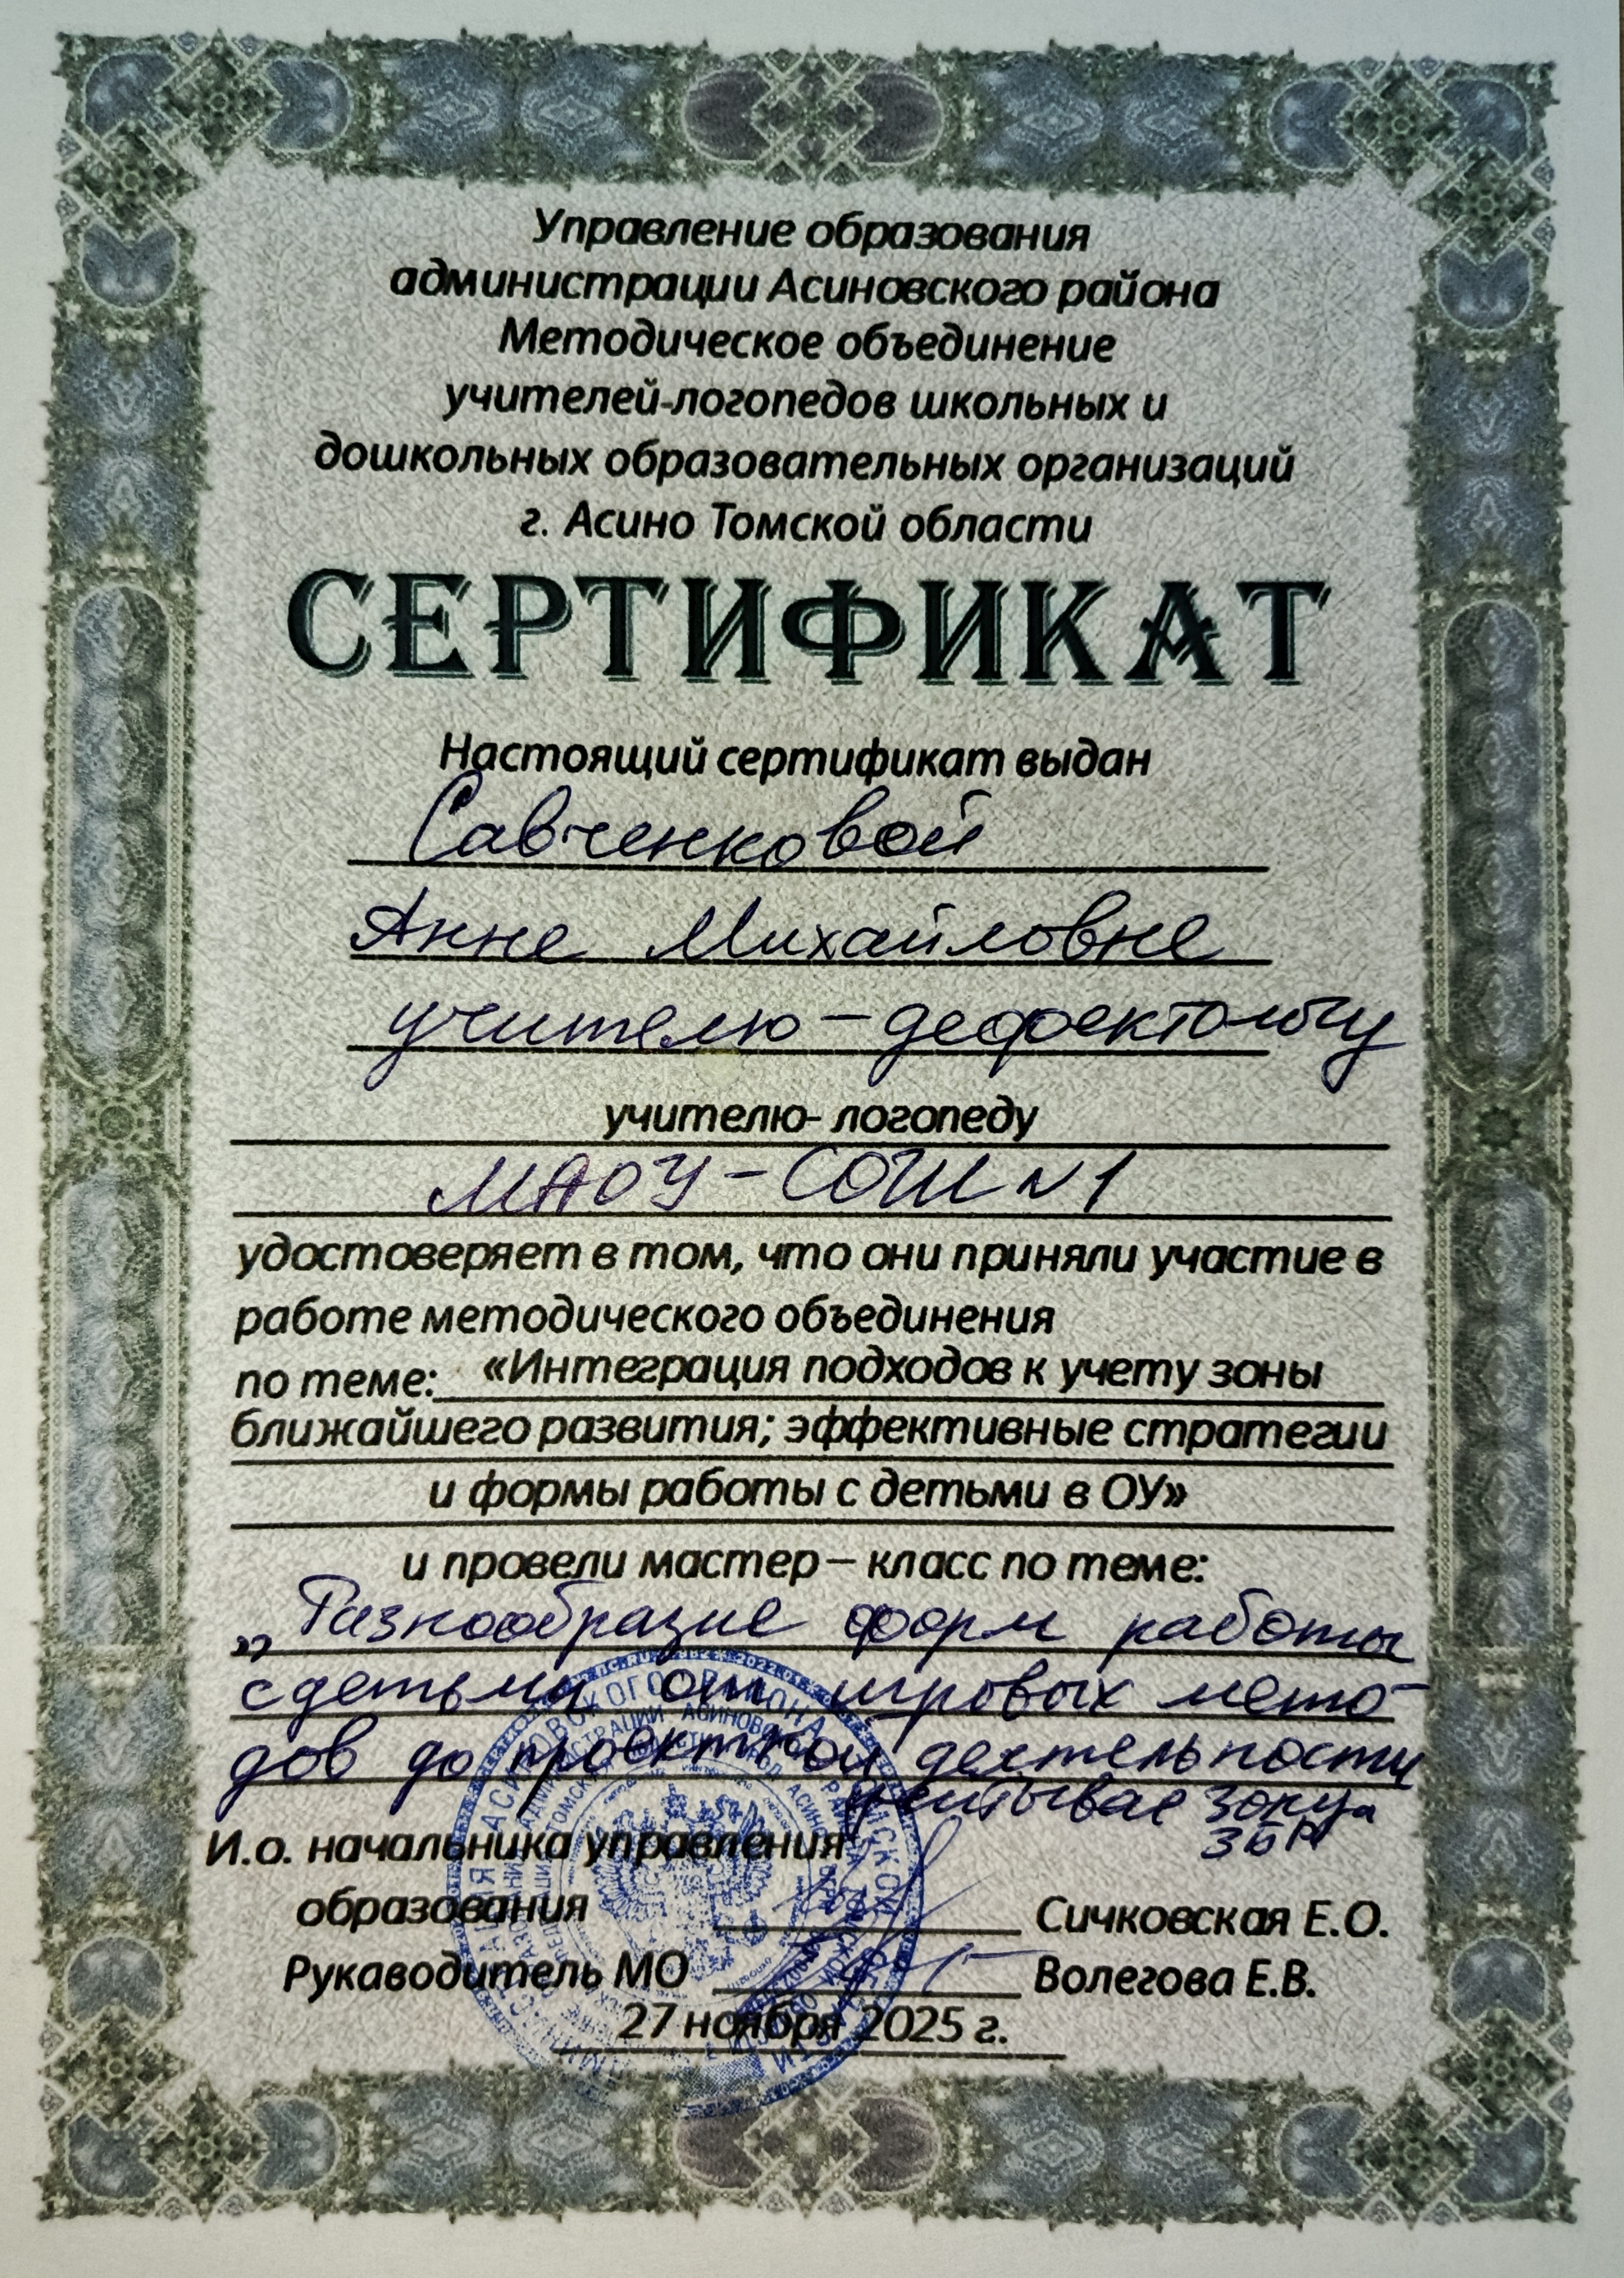 Управление образования
администрации Асиновского района
Методическое объединение
учителей-логопедов школьных и
дошкольных образовательных организаций
г. Асино Томской области
СЕРТИФИКАТ
Настоящий сертификат выдан
Савченковой
Анне Михайловне
учителю-дефектологу
учителю- логопеду
МАОУ-СОШ №1
удостоверяет в том, что они приняли участие в
работе методического объединения
по теме: «Интеграция подходов к учету зоны
ближайшего развития; эффективные стратегии
и формы работы с детьми в ОУ»
и провели мастер – класс по теме:
„Разнообразие форм работы
с детьми от игровых мето-
дов до проектной деятельности
зону
ЗБР"
И.о. начальника управления
образования Сичковская Е.О.
Руководитель МО Волегова Е.В.
27 ноября 2025 г.